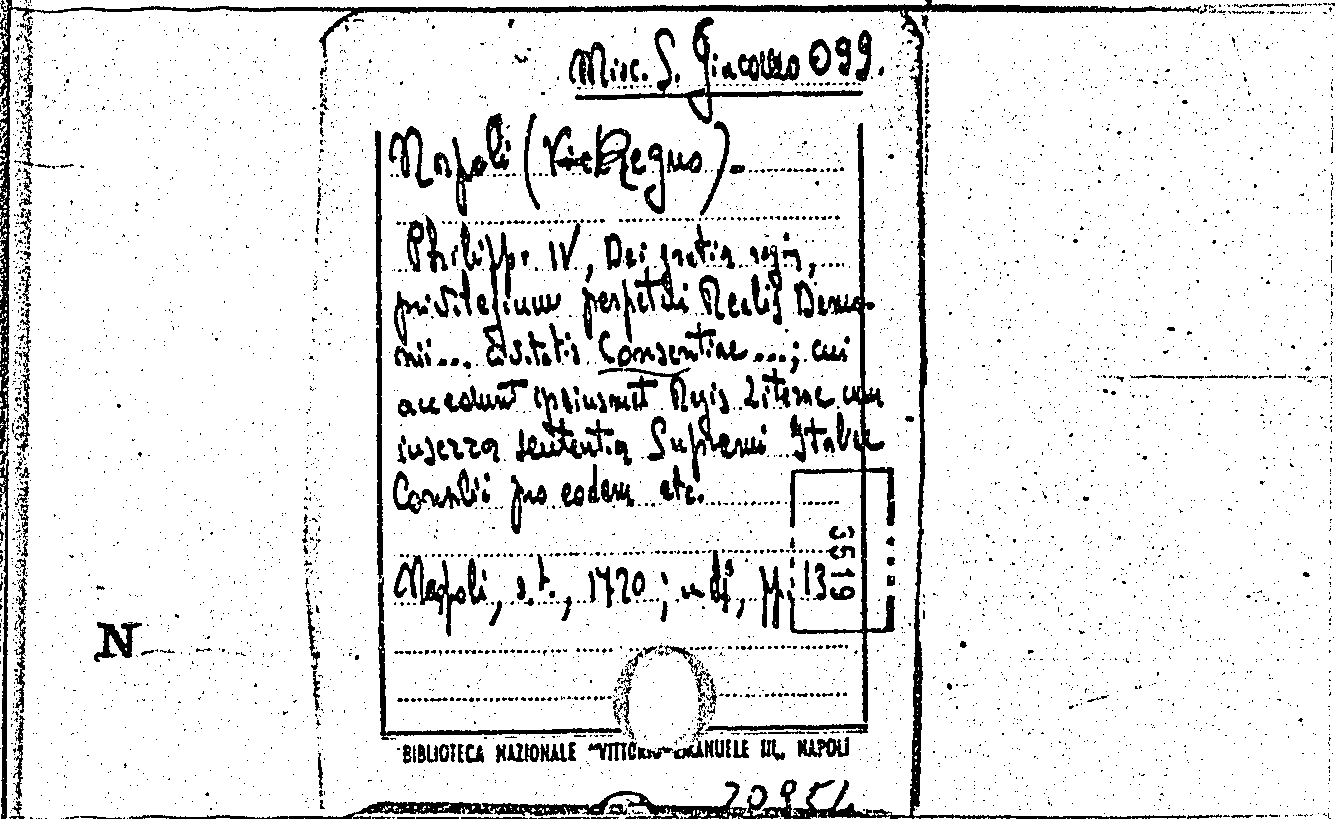 Misc. S. Giacomo 099.
Napoli (Regno).
Philippi IV, Dei gratia regis,
privilegium perpetui Realis Demo-
nii... civitatis Consentiae...; cui
accedunt ipsiusmet Regis Literae cum
inserta sententia Supremi Italiae
Consilii pro eadem etc.
Napoli, s.t., 1720; in 4°, pp. 13
3519
N
BIBLIOTECA NAZIONALE "VITTORIO EMANUELE III„ NAPOLI